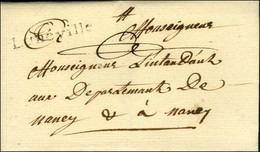 Lunéville
Monseigneur
Monseigneur Lintandant
aux Departemant De
nancy & à nancy